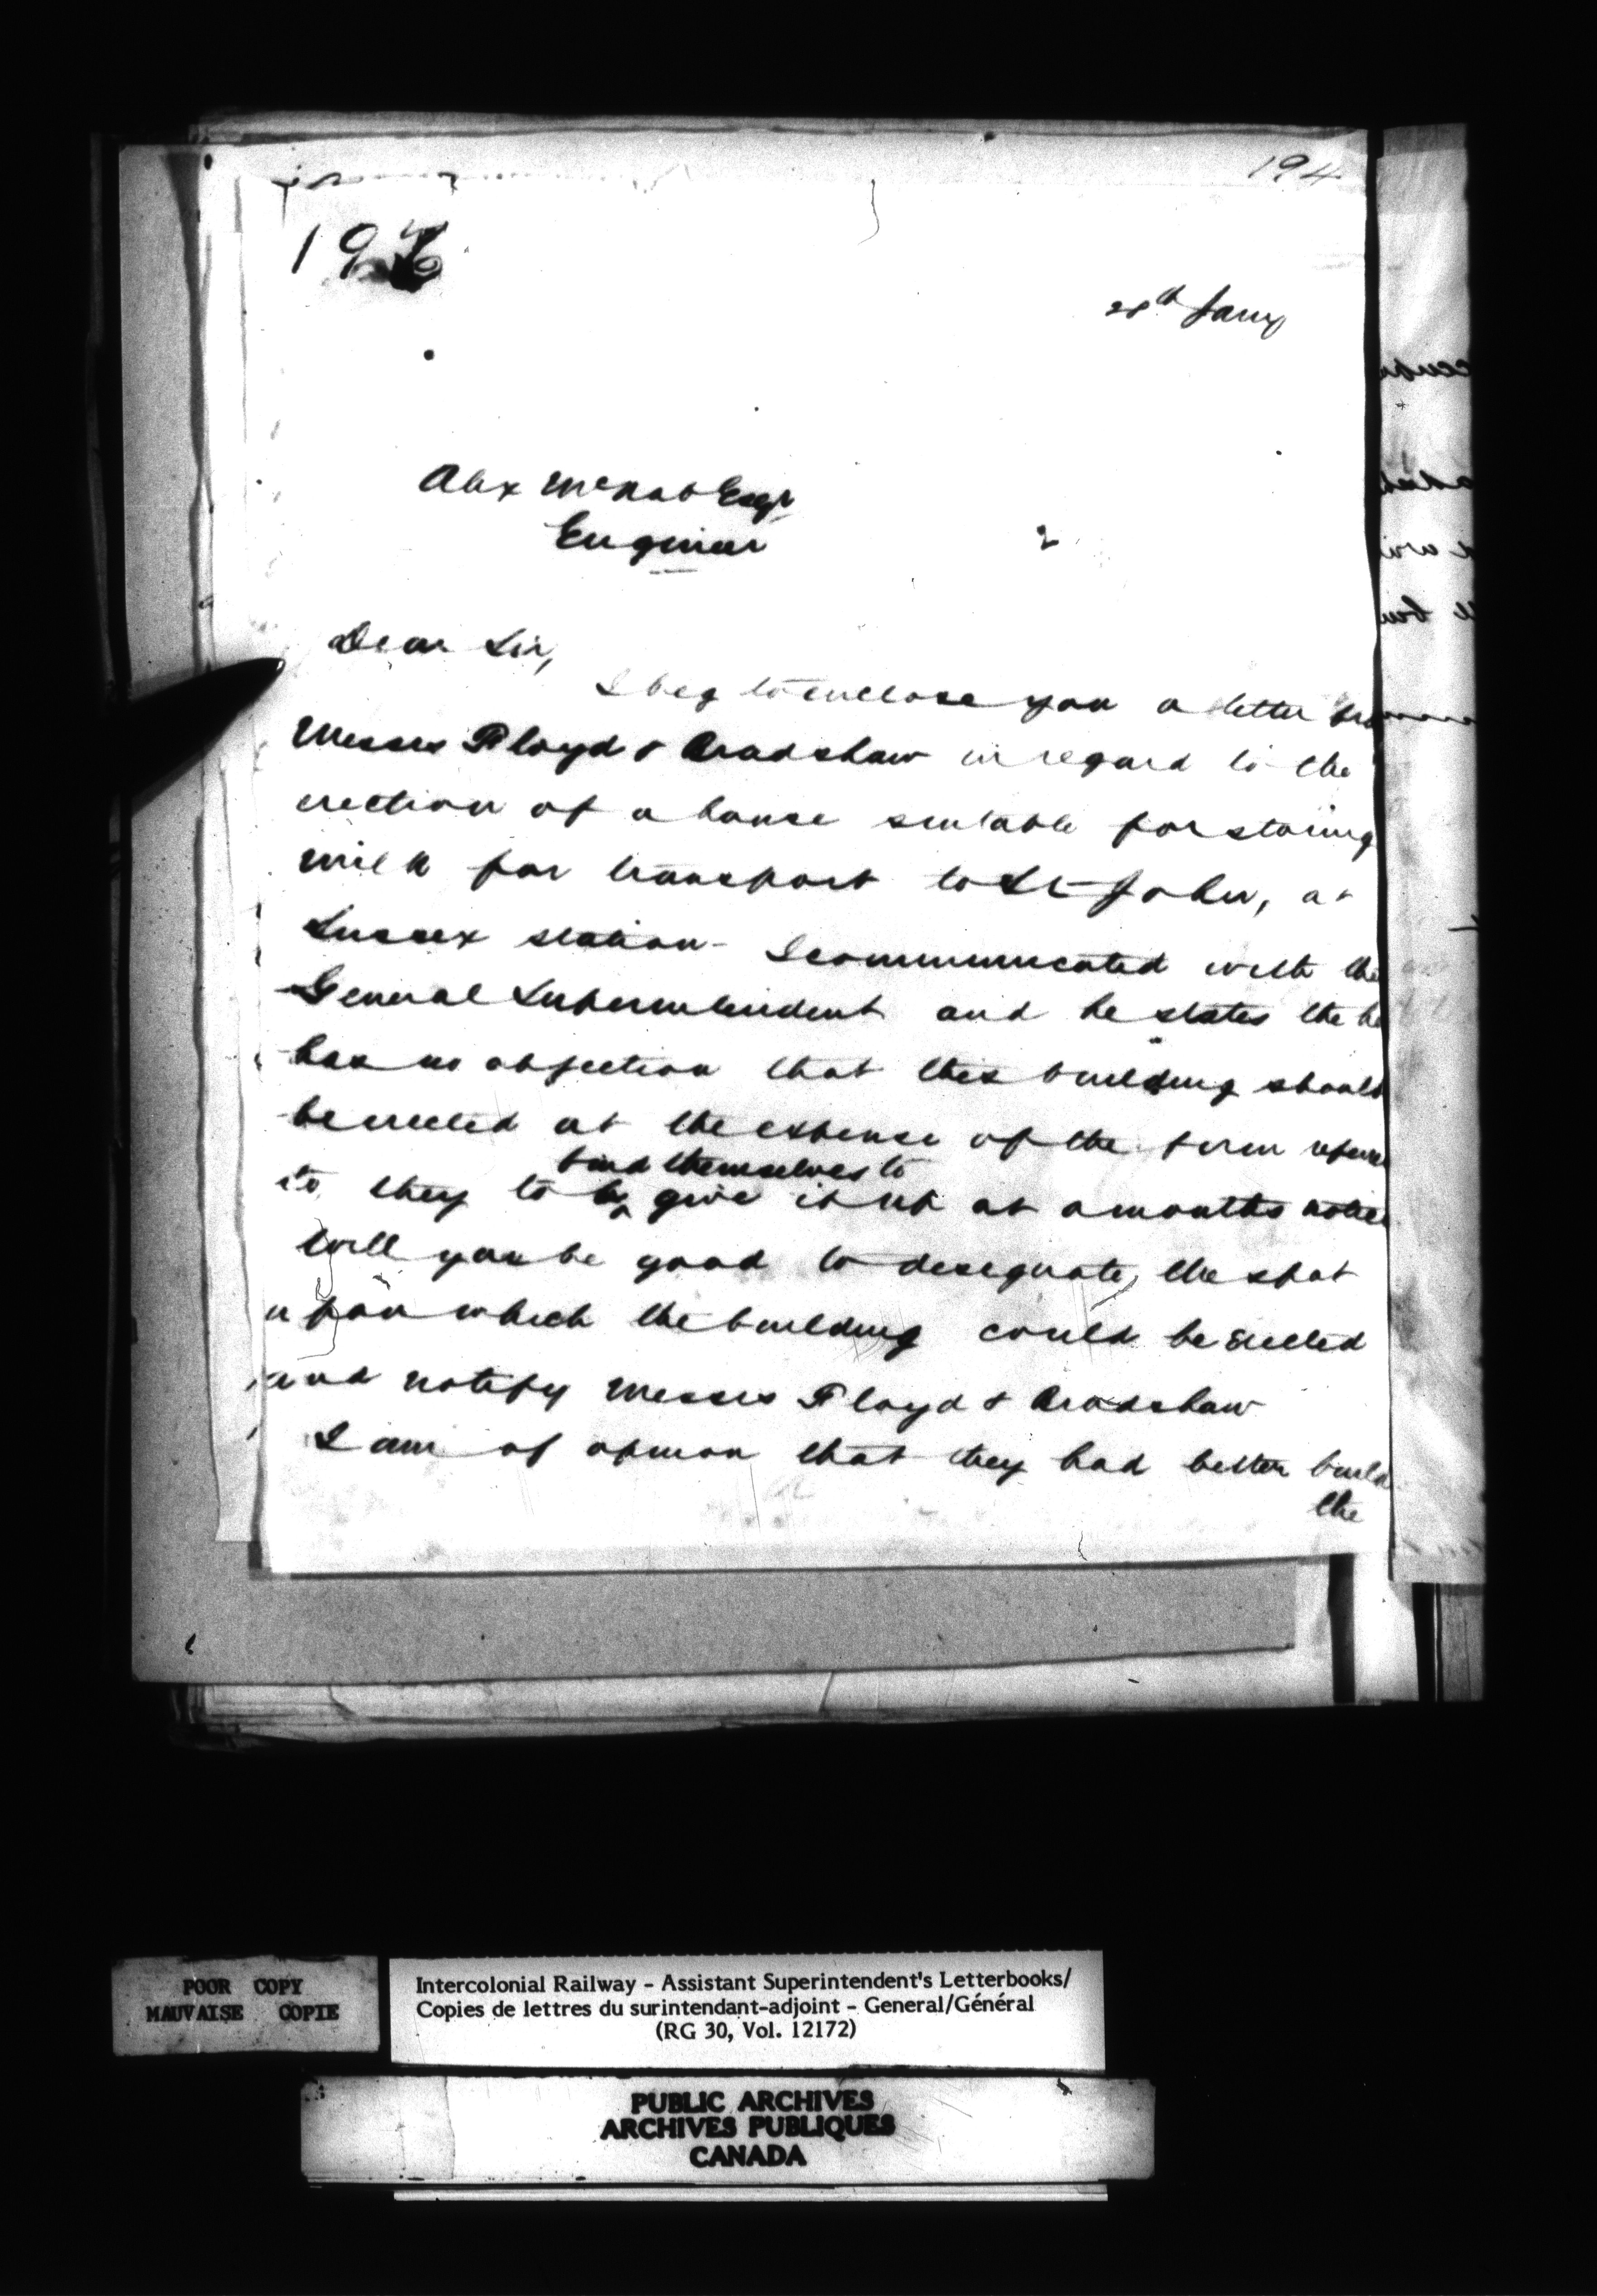 194
28th Jany
Alex McNab Esqr
Engineer
Dear Sir,
I beg to enclose you a letter from
Messrs Floyd & Bradshaw in regard to the
erection of a house suitable for storing
milk for transport to St John, at
Sussex station - I communicated with the
General Superintendent and he states the he
has no objection that this building should
be erected at the expense of the firm
bind themselves to
to they to give it up at a months notice
Will you be good to designate, the spot
upon which the building could be erected
and notify Messrs Floyd & Bradshaw
I am of opinion that they had better build
the
POOR COPY
MAUVAISE COPIE
Intercolonial Railway - Assistant Superintendent's Letterbooks/
Copies de lettres du surintendant-adjoint - General/Général
(RG 30, Vol. 12172)
PUBLIC ARCHIVES
ARCHIVES PUBLIQUES
CANADA